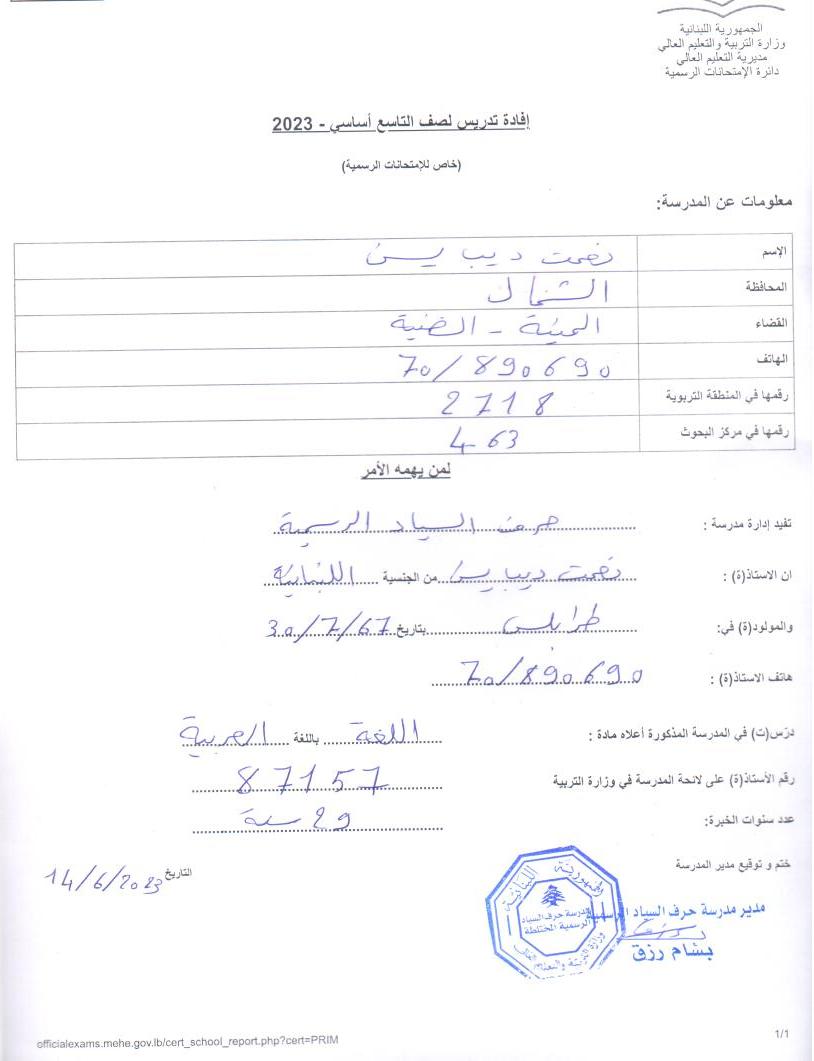 الجمهورية اللبنانية
وزارة التربية والتعليم العالي
مديرية التعليم العالي
دائرة الإمتحانات الرسمية
إفادة تدريس لصف التاسع أساسي - 2023
(خاص للإمتحانات الرسمية)
معلومات عن المدرسة:
الإسم نعمت ديب يسن
المحافظة الشمال
القضاء المنية - الضنية
الهاتف 70/890690
رقمها في المنطقة التربوية 2718
رقمها في مركز البحوث 463
لمن يهمه الأمر
تفيد إدارة مدرسة : حرف السياد الرسمية
ان الاستاذ(ة) : نعمت ديب يسن من الجنسية اللبنانية
والمولود(ة) في: طرابلس بتاريخ 30/7/67
هاتف الاستاذ(ة) : 70/890690
درّس(ت) في المدرسة المذكورة أعلاه مادة : اللغة باللغة العربية
رقم الأستاذ(ة) على لائحة المدرسة في وزارة التربية 87157
عدد سنوات الخبرة: 29 سنة
ختم و توقيع مدير المدرسة
التاريخ 14/6/2023
مدير مدرسة حرف السياد الرسمية
بشام رزق
الجمهورية اللبنانية
مدرسة حرف السياد
الرسمية المختلطة
وزارة التربية والتعليم العالي
officialexams.mehe.gov.lb/cert_school_report.php?cert=PRIM
1/1